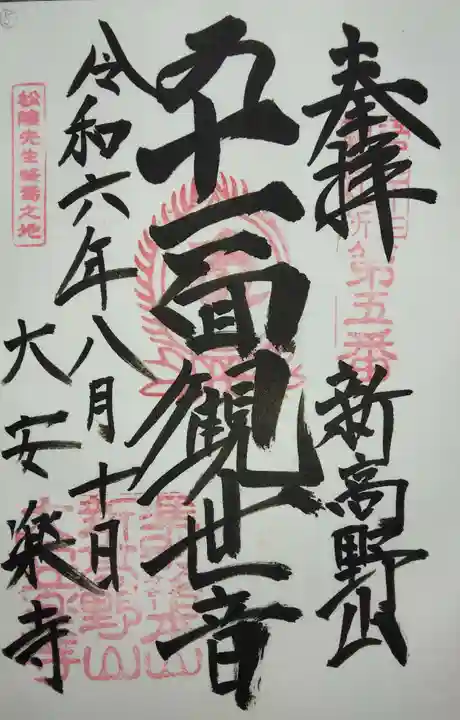 奉拝 新高野山
第五番
十一面観世音
令和六年八月十日
大安楽寺
松陰先生終焉之地
新高野山